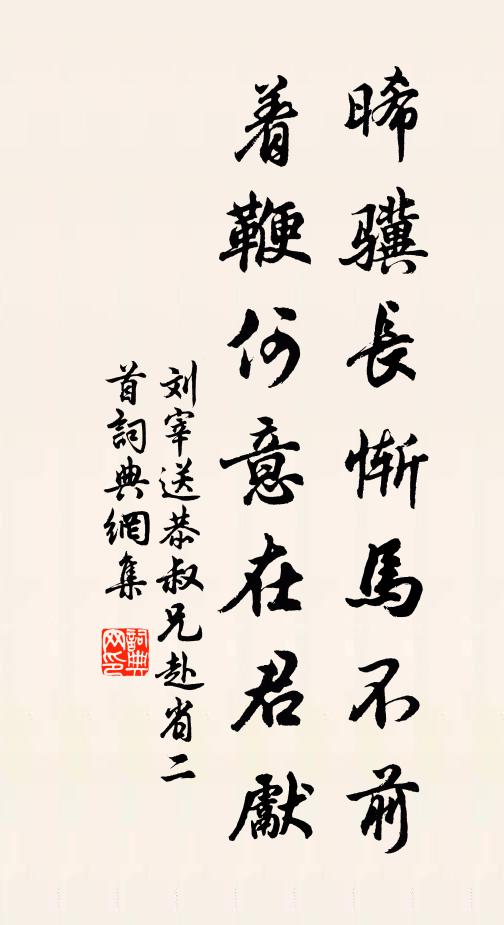 晞骥長慚馬不前
着鞭何意在君獻
刘宰送恭叔兄赴省二
首詞典網集
詞典
网印